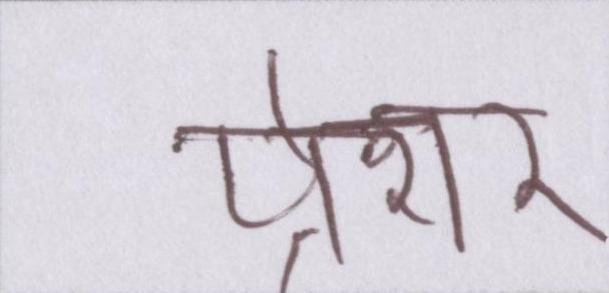 प्रेशर